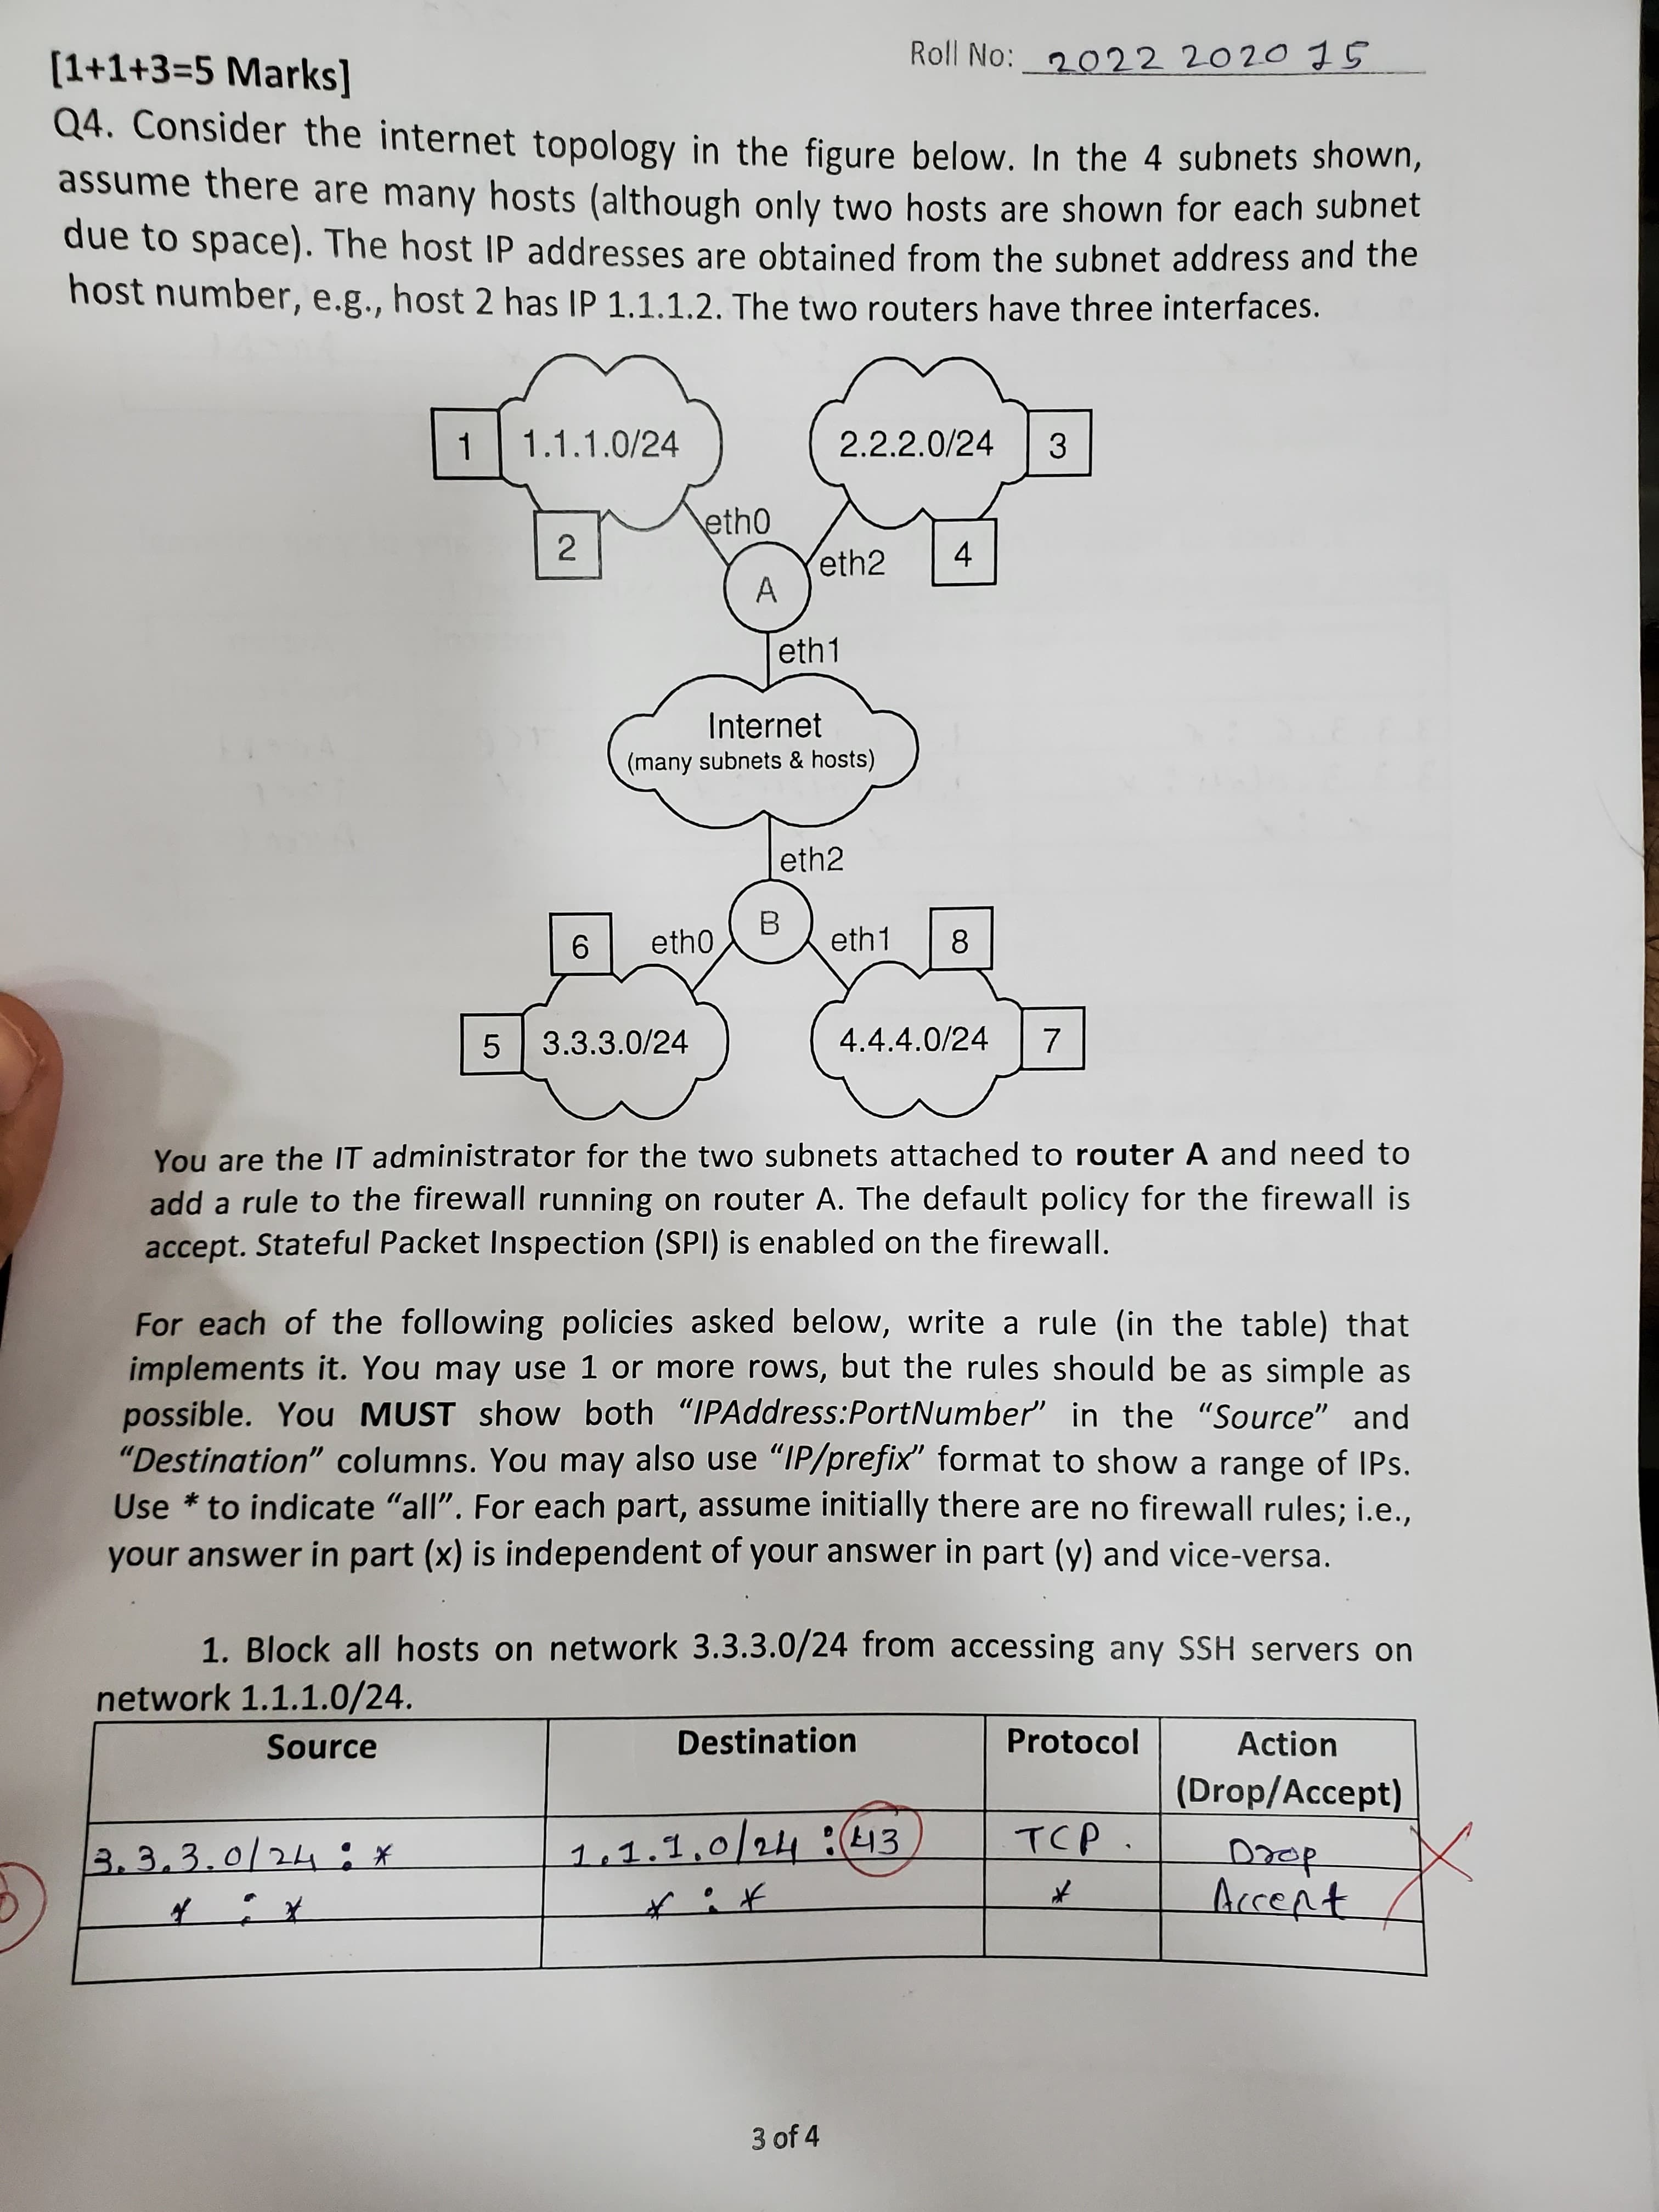 Roll No: 2022 2020 15
[1+1+3=5 Marks]
Q4. Consider the internet topology in the figure below. In the 4 subnets shown,
assume there are many hosts (although only two hosts are shown for each subnet
due to space). The host IP addresses are obtained from the subnet address and the
host number, e.g., host 2 has IP 1.1.1.2. The two routers have three interfaces.
1
1.1.1.0/24
2.2.2.0/24
3
2
eth0
eth2
4
A
eth1
Internet
(many subnets & hosts)
eth2
6
eth0
B
eth1
8
5
3.3.3.0/24
4.4.4.0/24
7
You are the IT administrator for the two subnets attached to router A and need to
add a rule to the firewall running on router A. The default policy for the firewall is
accept. Stateful Packet Inspection (SPI) is enabled on the firewall.
For each of the following policies asked below, write a rule (in the table) that
implements it. You may use 1 or more rows, but the rules should be as simple as
possible. You MUST show both “IPAddress:PortNumber” in the “Source” and
“Destination” columns. You may also use “IP/prefix” format to show a range of IPs.
Use * to indicate “all”. For each part, assume initially there are no firewall rules; i.e.,
your answer in part (x) is independent of your answer in part (y) and vice-versa.
1. Block all hosts on network 3.3.3.0/24 from accessing any SSH servers on
network 1.1.1.0/24.
Source Destination Protocol Action
(Drop/Accept)
3.3.3.0/24 : * 1.1.1.0/24 : 43 TCP . Drop
* : * * : * * Accept
3 of 4